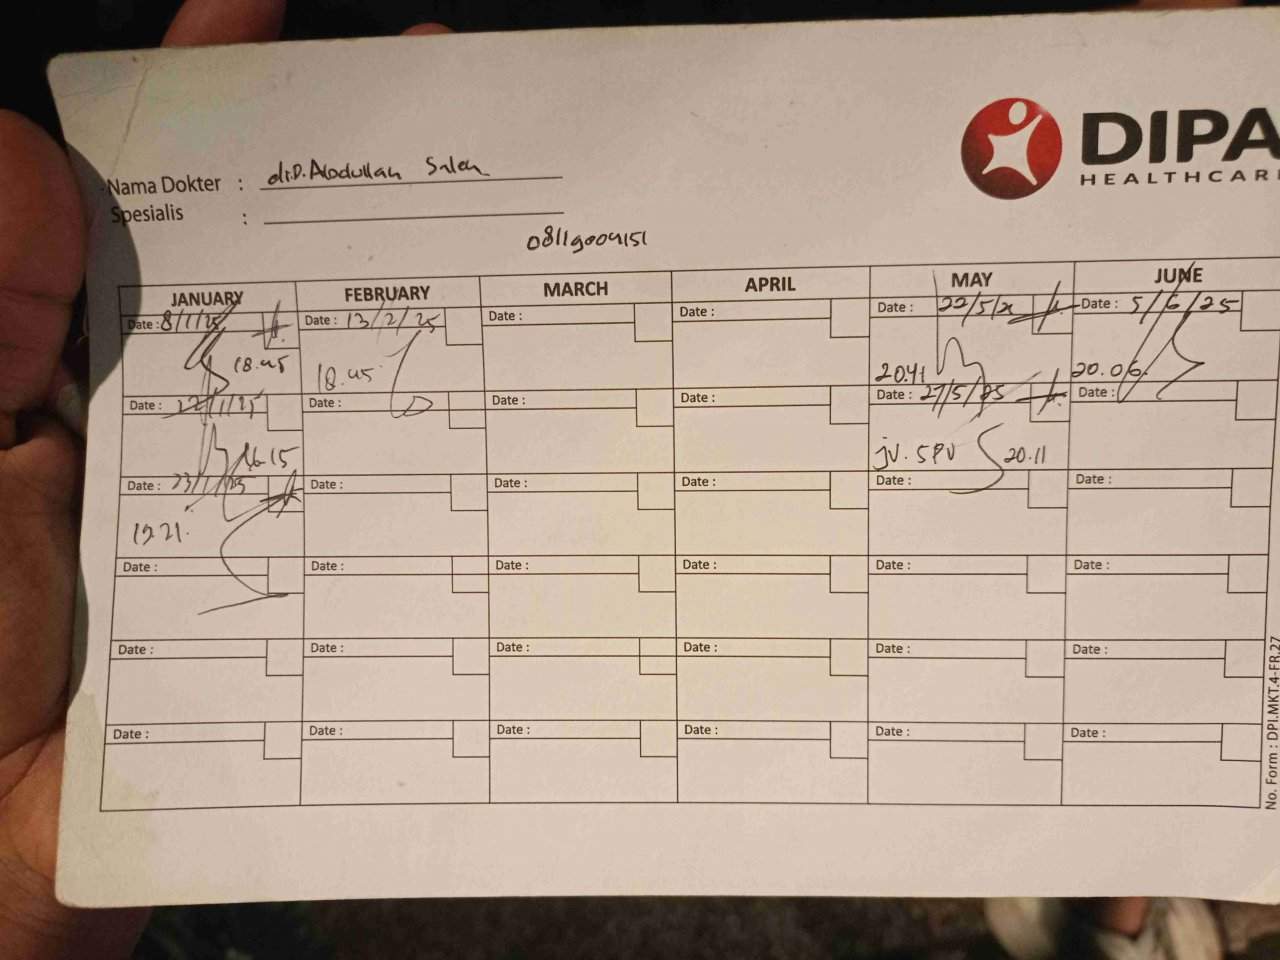 DIPA
HEALTHCAR
Nama Dokter : dr.D.Abdullah Saleh
Spesialis :
08119004151
JANUARY FEBRUARY MARCH APRIL MAY JUNE
Date : 8/1/25 Date : 13/2/25 Date : Date : Date : 22/5/25 Date : 5/6/25
18.45 18.45 20.41 20.06
Date : 22/1/25 Date : Date : Date : Date : 27/5/25 Date :
16.15 jv. SPV 20.11
Date : 23/1/25 Date : Date : Date : Date : Date :
19.21.
Date : Date : Date : Date : Date : Date :
Date : Date : Date : Date : Date : Date :
Date : Date : Date : Date : Date : Date :
No. Form : DPI.MKT.4-FR.27